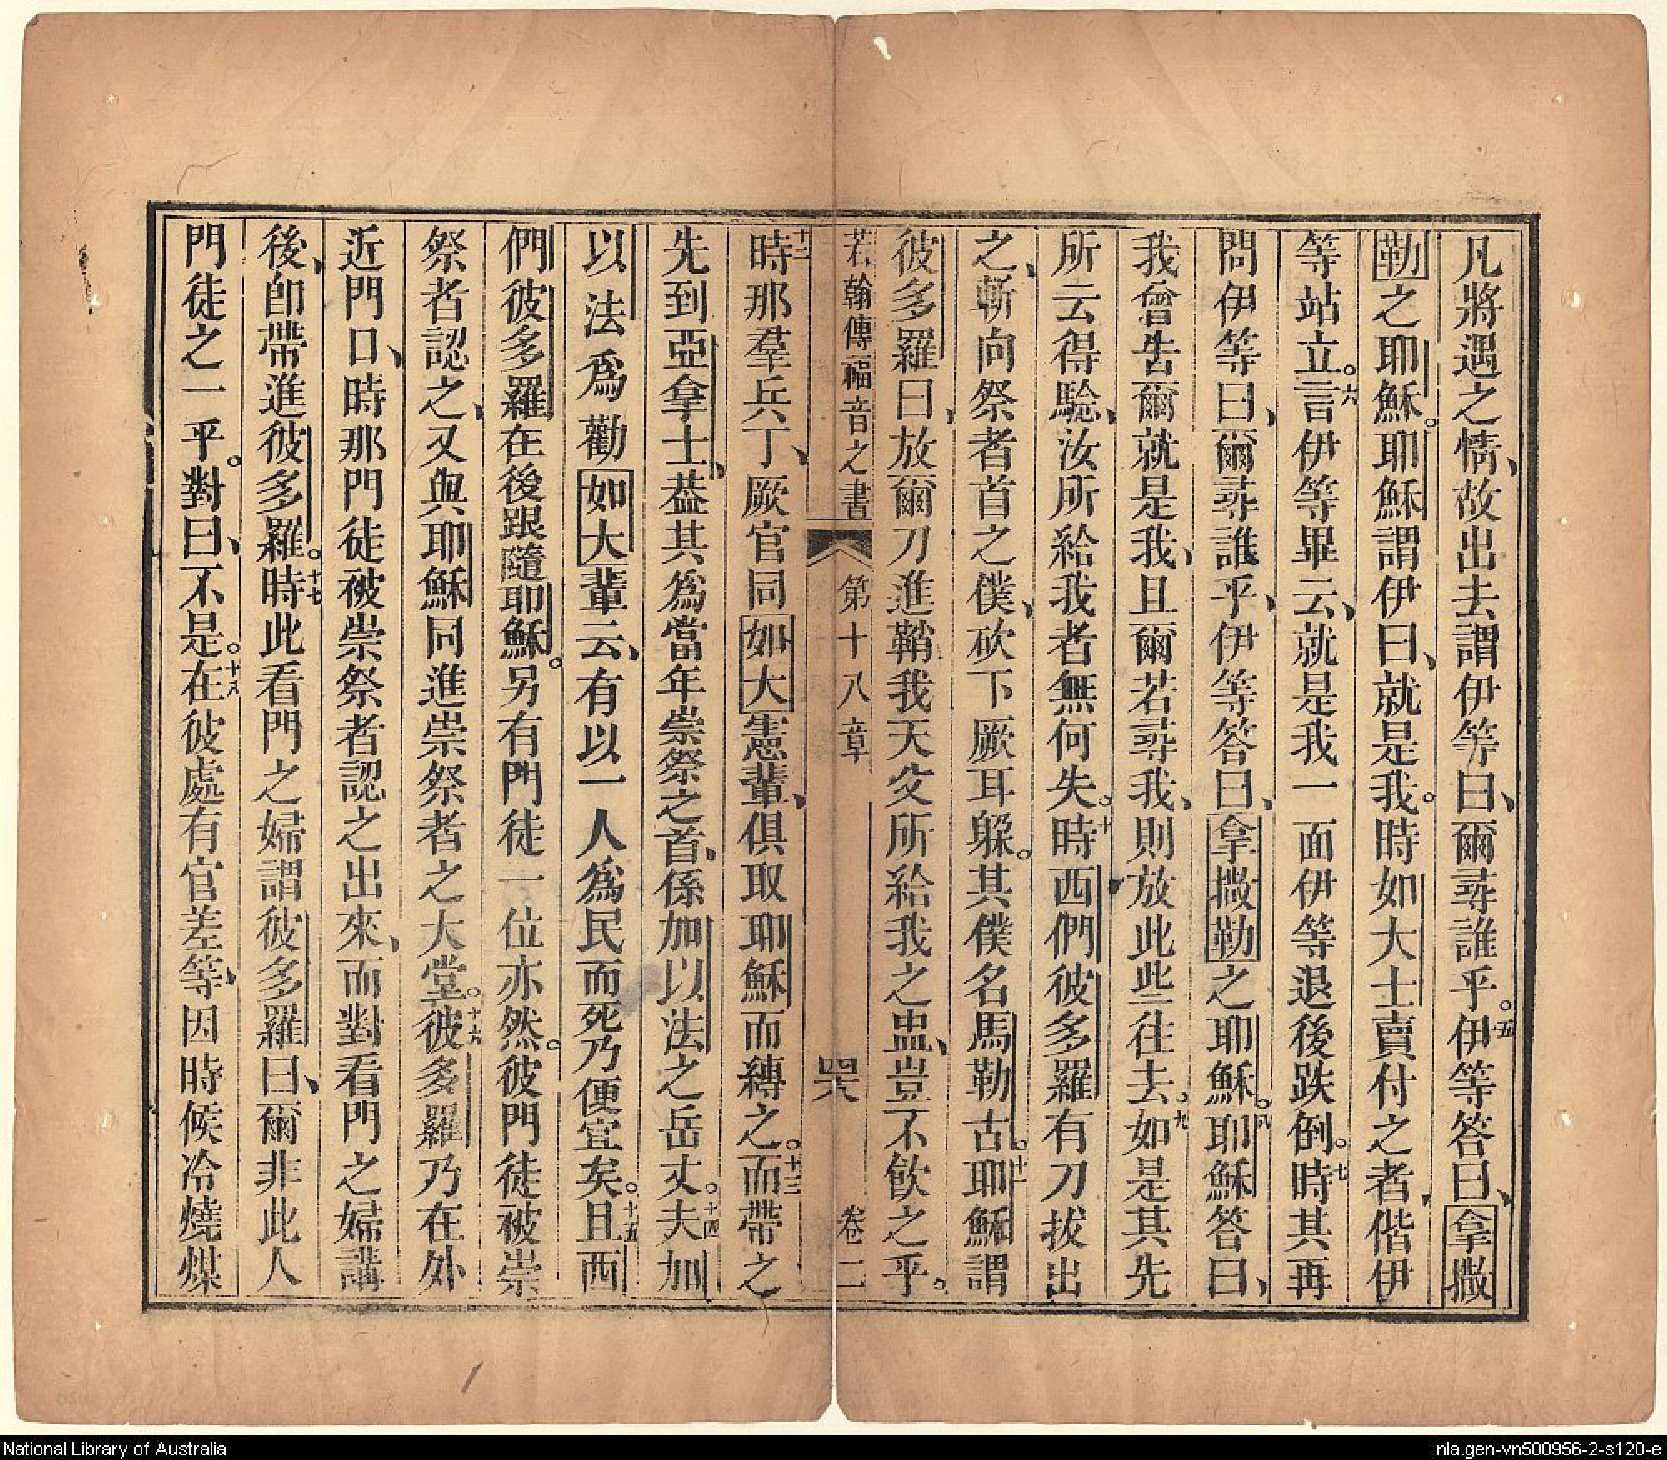 凡將遇之情、故出去謂伊等曰、爾尋誰乎。五伊等答曰、拿撒
勒之耶穌。耶穌謂伊曰、就是我。時如大士賣付之者、偕伊
等站立。六言伊等畢云、就是我一面伊等退後跌倒。七時其再
問伊等曰、爾尋誰乎、伊等答曰、拿撒勒之耶穌。八耶穌答曰、
我曾告爾就是我、且爾若尋我、則放此些往去。九如是其先
所云得騐、汝所給我者無何失。十時西們彼多羅有刀拔出
之、斬向祭者首之僕、砍下厥耳躲。其僕名馬勒古。十一耶穌謂
彼多羅曰、放爾刀進鞘我天父所給我之盅、豈不飲之乎。
若翰傳福音之書 第十八章 卷二
十二時那羣兵丁、厥官同如大憲輩、俱取耶穌而縛之。十三而帶之
先到亞拿士、葢其為當年崇祭之首、係加以法之岳丈。十四夫加
以法為勸如大輩云、有以一人為民而死乃便宜矣。十五且西
們彼多羅在後跟隨耶穌。另有門徒一位亦然。彼門徒被崇
祭者認之、又與耶穌同進崇祭者之大堂。十六彼多羅乃在外
近門口、時那門徒被崇祭者認之出來、而對看門之婦講
後、即帶進彼多羅。十七時此看門之婦謂彼多羅曰、爾非此人
門徒之一乎。對曰、不是。十八在彼處有官差等、因時候冷燒煤
National Library of Australia
nla.gen-vn500956-2-s120-e